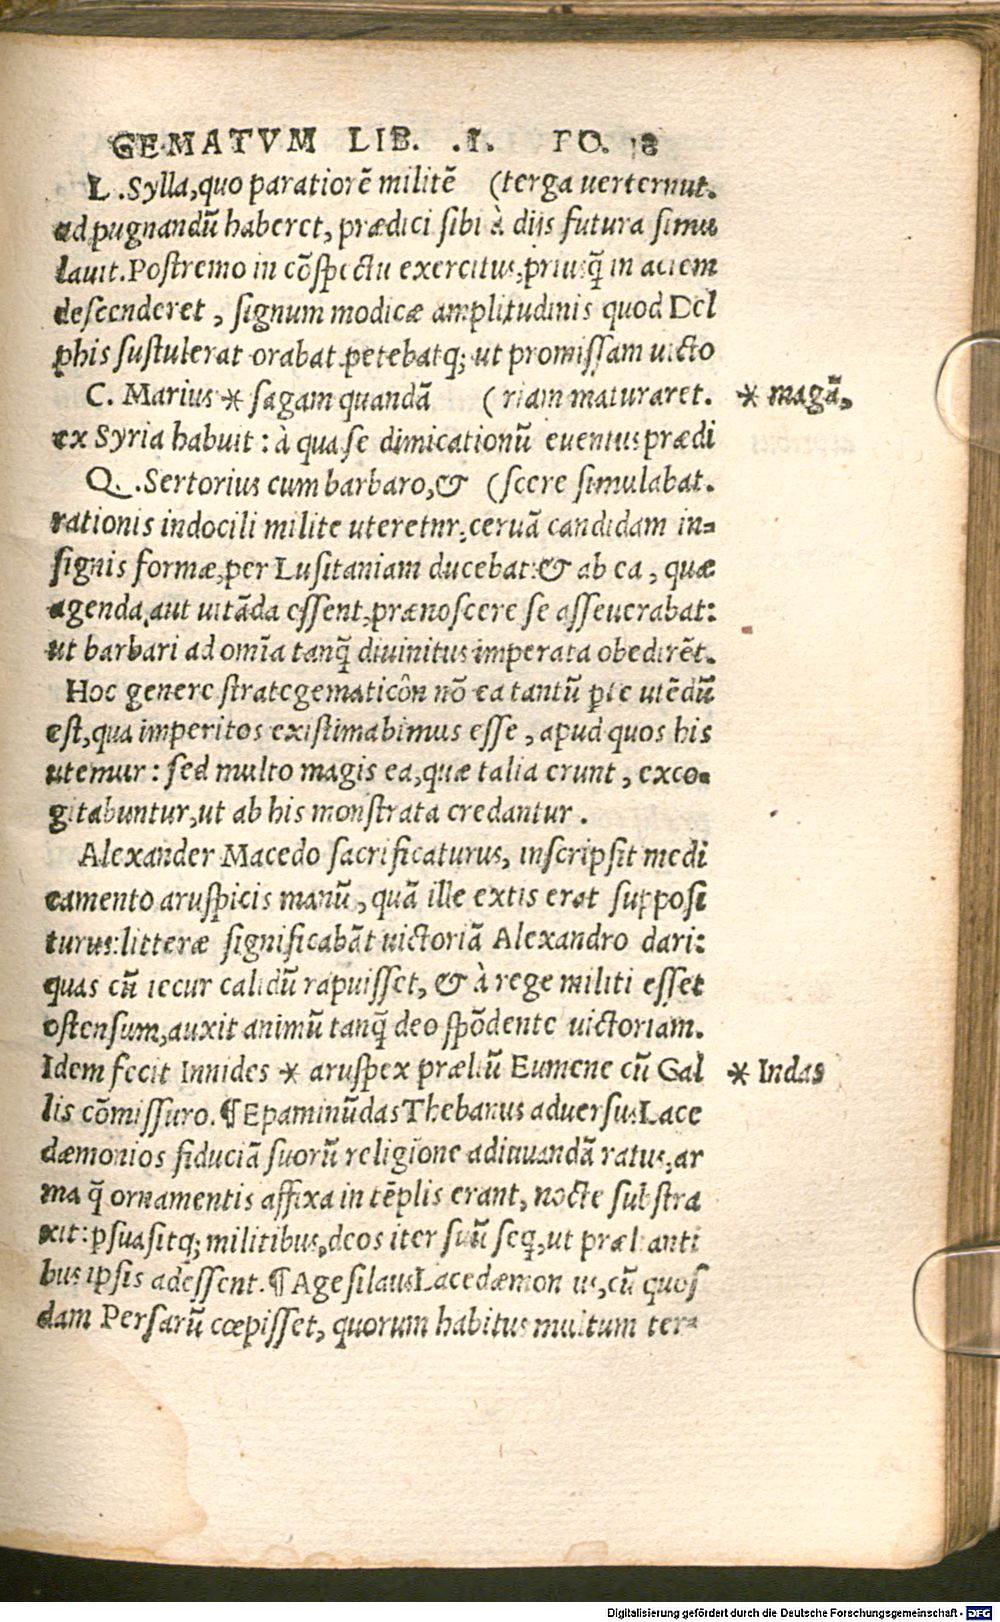 GEMATVM LIB. .I. FO. 18
L .Sylla,quo paratiorē militē (terga uerternut.
ad pugnandū haberet, prædici sibi à dijs futura simu
lauit.Postremo in cōspectu exercitus,priusq̄ in aciem
descenderet , signum modicæ amplitudinis quod Del
phis sustulerat orabat petebatq; ut promissam uicto
C. Marius * sagam quandā ( riam maturaret. * magā,
ex Syria habuit : à qua se dimicationū euentus prædi
Q. .Sertorius cum barbaro,& (scere simulabat.
rationis indocili milite uteretnr, ceruā candidam in-
signis formæ,per Lusitaniam ducebat:& ab ea , quæ
agenda,aut uitāda essent,prænoscere se asseuerabat:
ut barbari ad omīa tanq̄ diuinitus imperata obedirēt.
Hoc genere strategematicôn nō ea tantū pte utēdū
est,qua imperitos existimabimus esse , apud quos his
utemur : sed multo magis ea,quæ talia erunt , exco-
gitabuntur,ut ab his monstrata credantur .
Alexander Macedo sacrificaturus, inscripsit medi
camento aruspicis manū , quā ille extis erat supposi
turus:litteræ significabāt uictoriā Alexandro dari:
quas cū iecur calidū rapuisset, & à rege militi esset
ostensum,auxit animū tanq̄ deo spōdente uictoriam.
Idem fecit Innides * aruspex præliū Eumene cū Gal * Indas
lis cōmissuro.¶Epaminūdas Thebanus aduersus Lace
dæmonios fiduciā suorū religione adiuuandā ratus,ar
ma q̄ ornamentis affixa in tēplis erant, nocte substra
xit:psuasitq; militibus,deos iter suū seq,ut prælianti
bus ipsis adessent.¶Agesilaus Lacedæmonius,cū quos
dam Persarū cœpisset, quorum habitus multum ter-
Digitalisierung gefördert durch die Deutsche Forschungsgemeinschaft - DFG